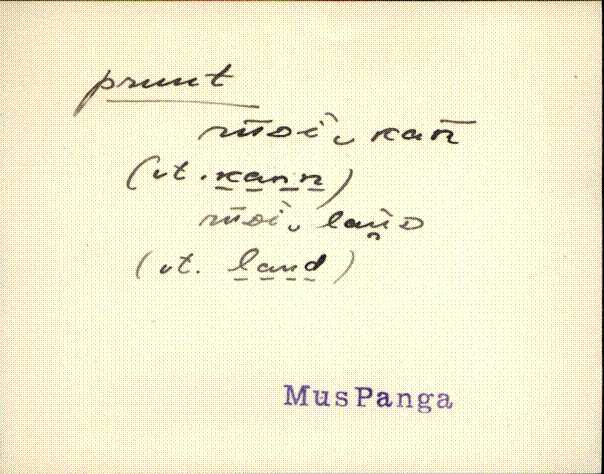 prunt
mōi͔ kan̄
(vt. kann)
mōi͔ lañD
(vt. land)
MusPanga